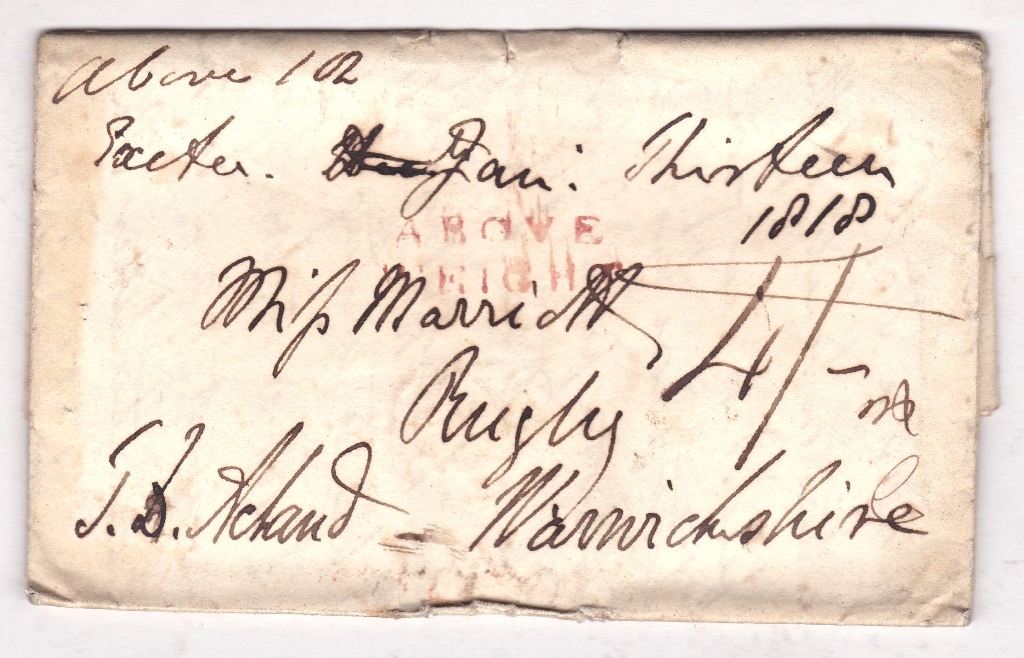 Above 1 oz
Exeter. Jan: Thirteen
1818
ABOVE
WEIGHT
Miss Marriott
4/-
Rugby
T. D. Acland
Warwickshire